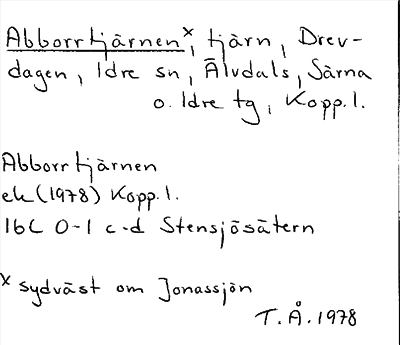 Abborrtjärnen x, tjärn, Drev-
dagen, Idre sn, Älvdals, Särna
o. Idre tg, Kopp. l.
Abborrtjärnen
ek (1978) Kopp. l.
16C 0-1 c-d Stensjösätern
x sydväst om Jonassjön
T. Å. 1978